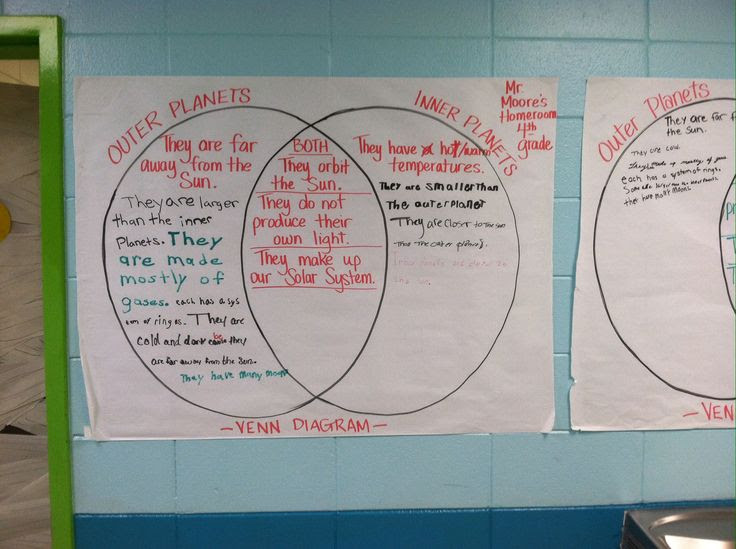 OUTER PLANETS
They are far
away from the
Sun.
They are larger
than the inner
Planets. They
are made
mostly of
gases. each has a sys
em or rings. They are
cold and dark they
are far away from the Sun.
They have many moons
BOTH
They orbit
the Sun.
They do not
produce their
own light.
They make up
our Solar System.
INNER PLANETS
They have hot/warm
temperatures.
They are smaller than
The outer Planet
They are closer to the sun
than the outer planets.
Mr.
Moore's
Homeroom
4th
grade
- VENN DIAGRAM -
Outer Planets
They are far f
the Sun.
They are cold.
They made up mostly of gases
each has a system of rings.
they have many Moons
- VEN